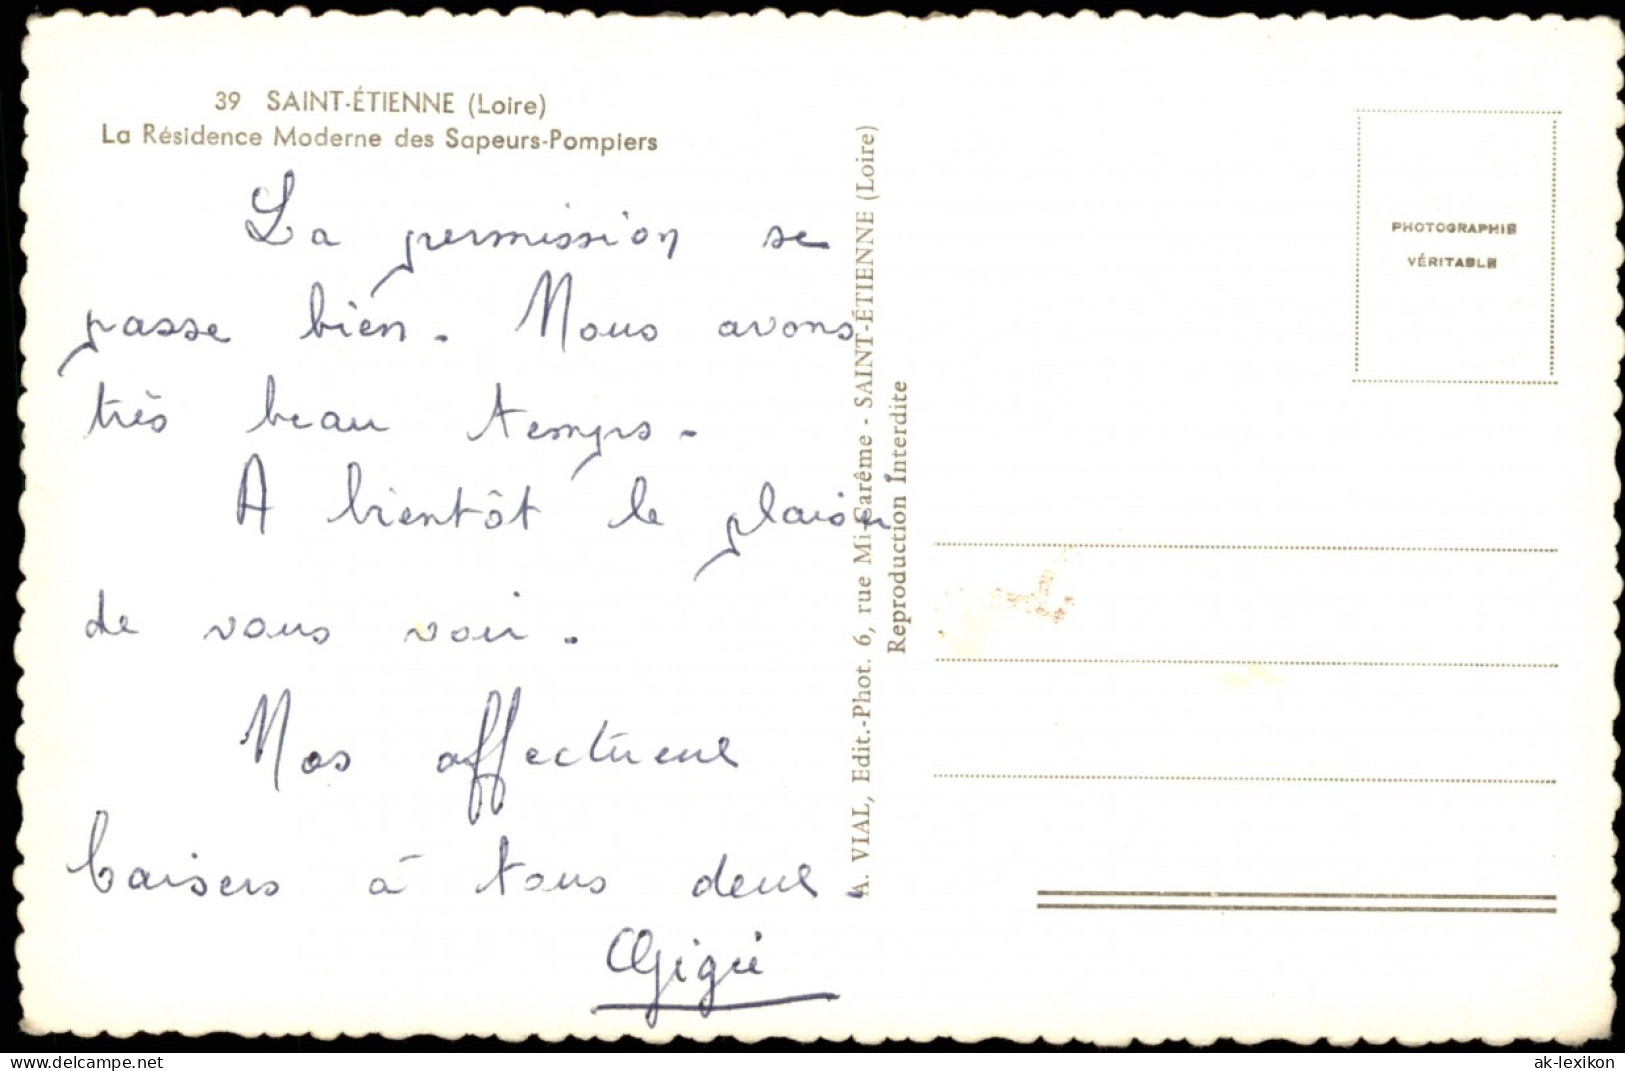 39 SAINT-ÉTIENNE (Loire)
La Résidence Moderne des Sapeurs-Pompiers
La permission se
passe bien. Nous avons
très beau temps.
A bientôt le plaisir
de vous voir.
Nos affectueux
baisers à tous deux.
A. VIAL, Edit.-Phot. 6, rue Mi-Carême - SAINT-ÉTIENNE (Loire)
Reproduction Interdite
PHOTOGRAPHIE
VÉRITABLE
delcampe.net
ak-lexikon